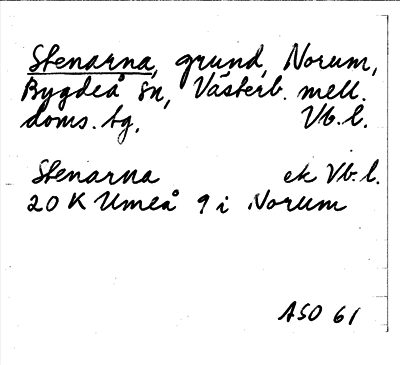 Stenarna, grund, Norum,
Bygdeå sn, Västerb. mell.
doms. tg. Vb. l.
Stenarna ek Vb. l.
20 K Umeå 9 i Norum
ASO 61